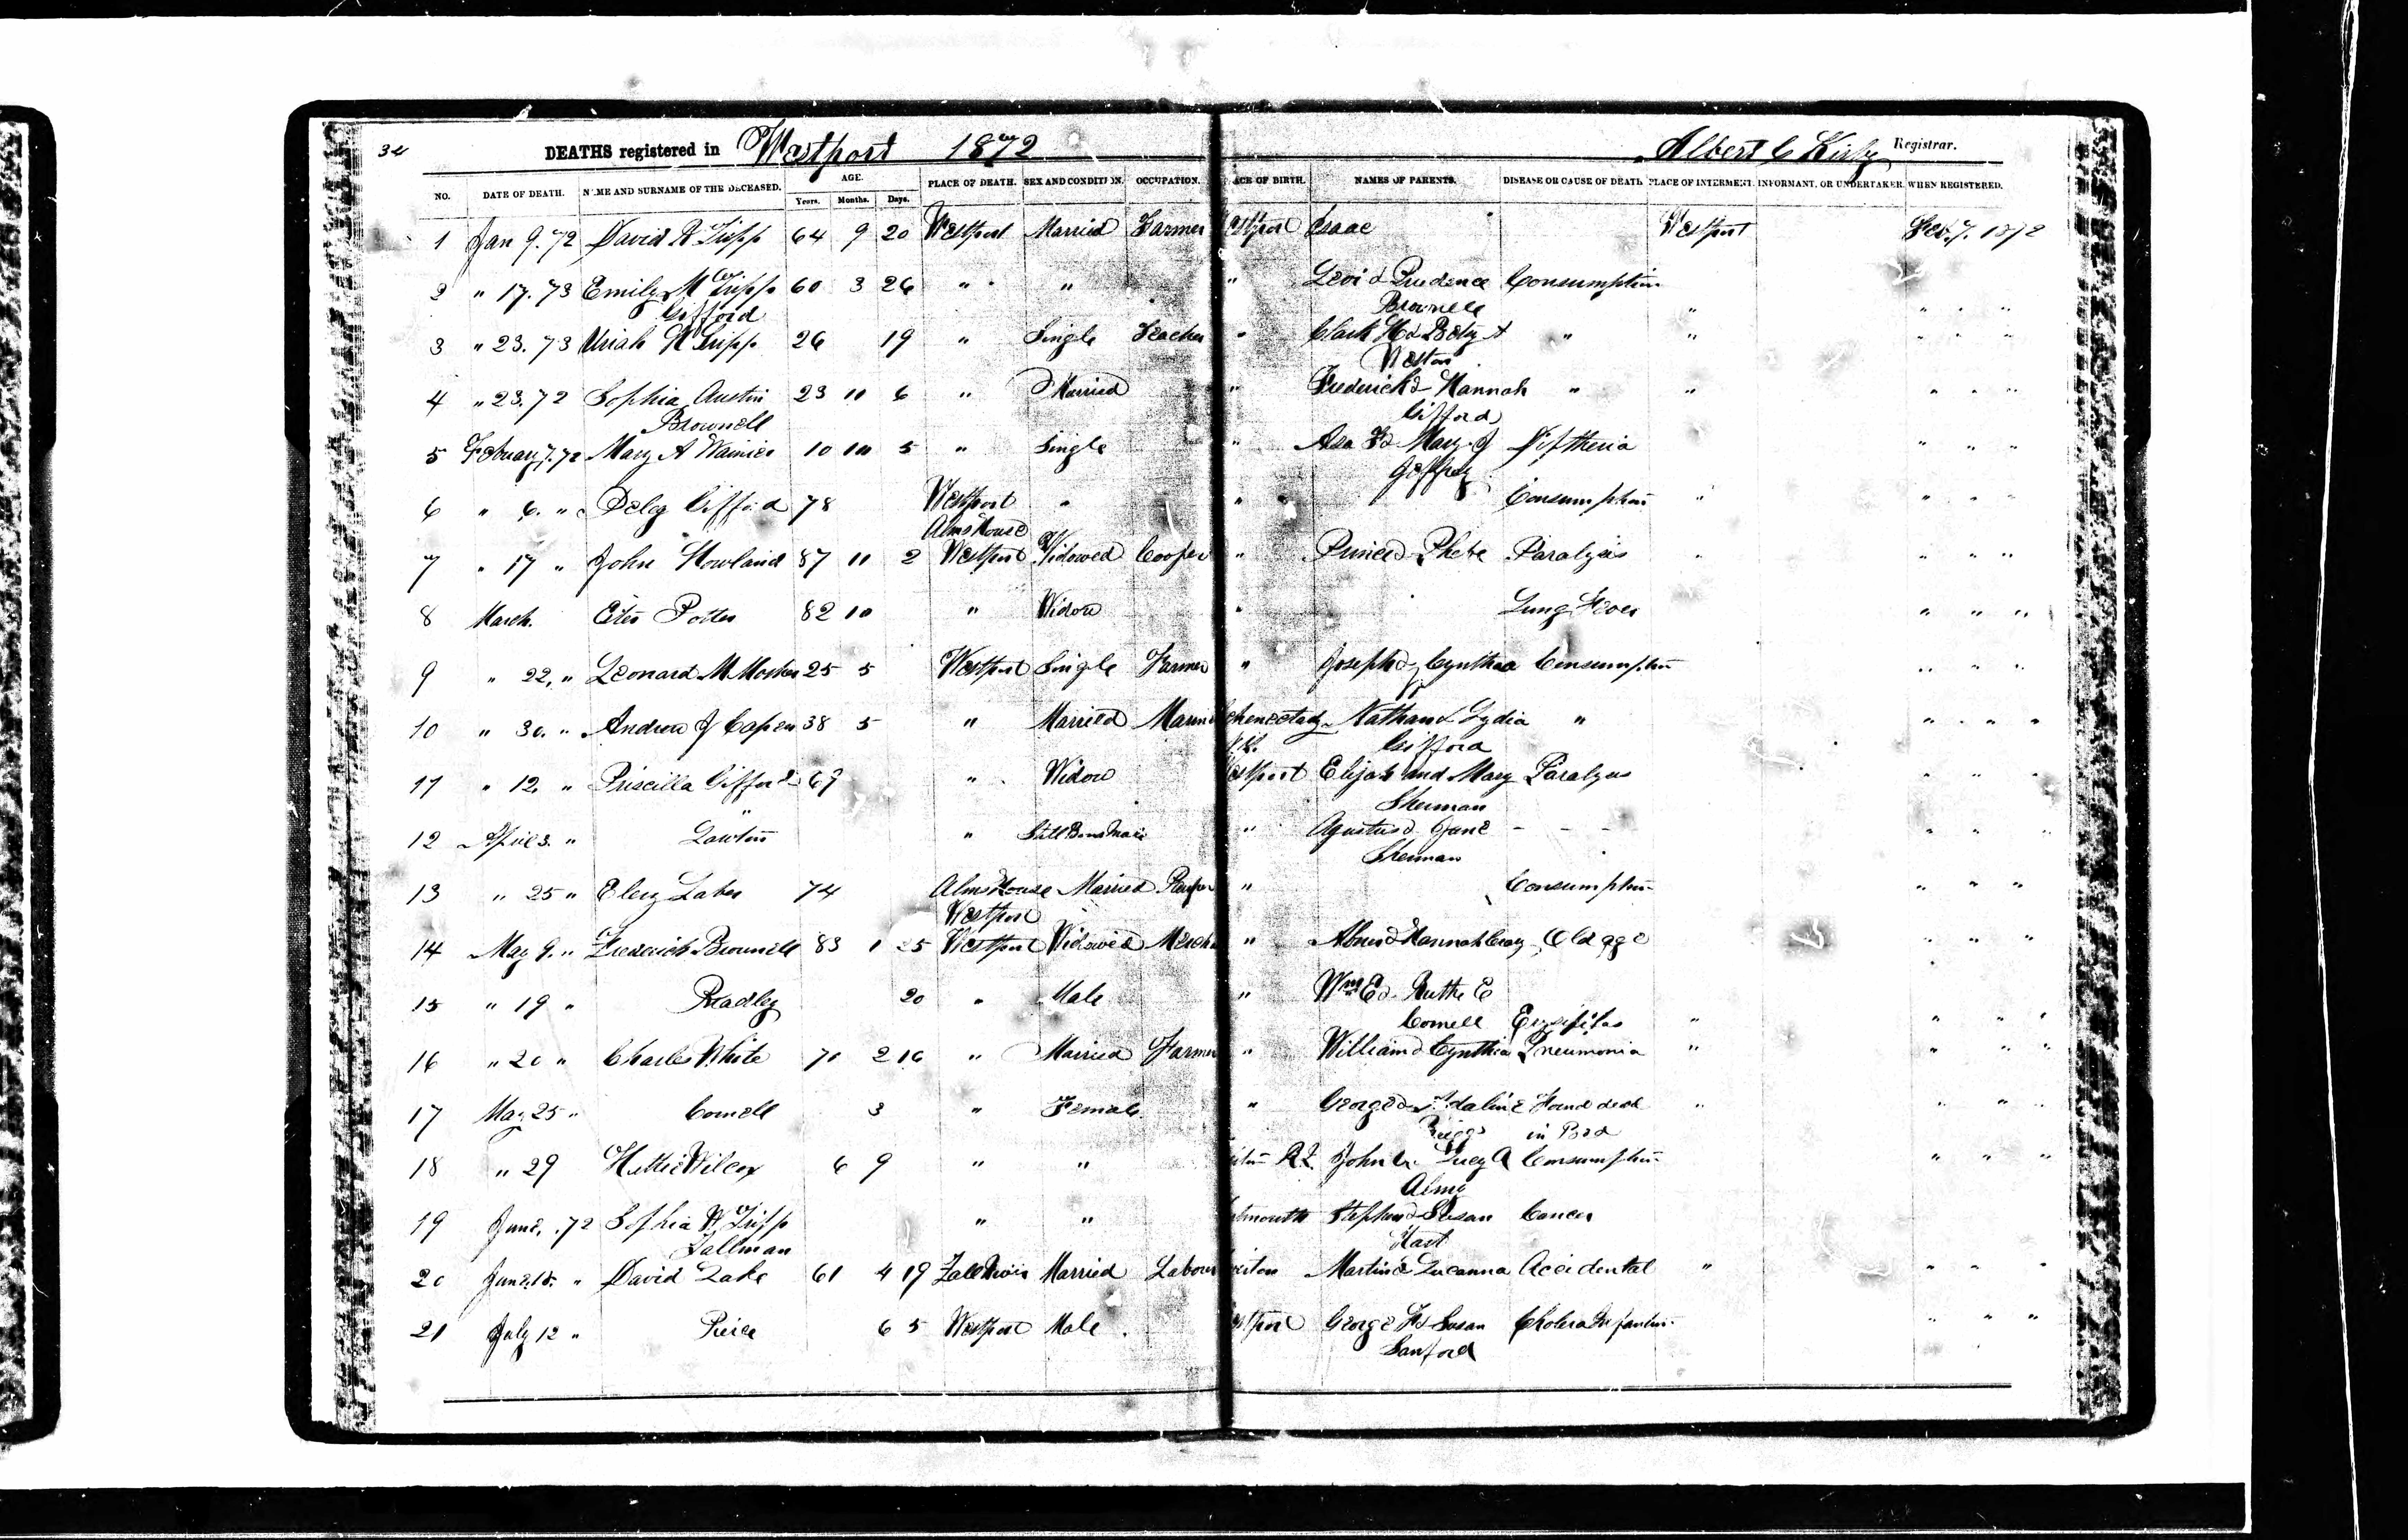 34
DEATHS registered in Westport 1872
Albert C Kirby Registrar.
NO. DATE OF DEATH. NAME AND SURNAME OF THE DECEASED. AGE. Years. Months. Days. PLACE OF DEATH. SEX AND CONDITION. OCCUPATION. ACE OF BIRTH. NAMES OF PARENTS. DISEASE OR CAUSE OF DEATH PLACE OF INTERMENT. INFORMANT, OR UNDERTAKER. WHEN REGISTERED.
1 Jan 9. 72 David R Tripp 64 9 20 Westport Married Farmer estport Isaac Westport Feb. 7. 1872
2 " 17. 73 Emily M Tripp 60 3 26 " " " Levi & Prudence Consumption
Gifford Brownell " " " "
3 " 23. 73 Uriah W Tripp 26 19 " Single Teacher " Clark H & Betsy A " " " " "
Weston
4 " 23. 72 Sophia Austin 23 11 6 " Married " Frederick & Hannah " " " " "
Brownell Gifford
5 February 7. 72 Mary A Wainier 10 10 5 " Single " Asa F & Mary J Diftheria " " "
Jeffrey
6 " 6. " Peleg Gifford 78 Westport " " " Consumption " " " "
Alms House
7 " 17 " John Howland 87 11 2 Westport Widowed Cooper " Prince & Phebe Paralysis " " " "
8 March. Potter 82 10 " Widow " Lung Fever " " "
9 " 22, " Leonard M Mosher 25 5 Westport Single Farmer " Joseph & Cynthia Consumption " " "
10 " 30. " Andrew J Capen 38 5 " Married Marin chenectady Nathan & Lydia " " " "
Gifford
11 " 12. " Priscilla Gifford 69 " Widow estport Elijah and Mary Paralysis " " "
Sherman
12 April 3. " Lawton " Still Born Male " Agustus & Jane - - - " " "
Sherman
13 " 25 " Elery Lake 74 Alms House Married " Consumption " " "
Westport
14 May 9. " Frederick Brownell 83 1 25 Westport Widowed Merch " Abner & Hannah Cory Old age " " "
15 " 19 " Bradley 20 " Male " Wm E & Ruth E
Cornell Erysipilas " " " "
16 " 20 " Charles White 70 2 16 " Married Farmer " William & Cynthia Pneumonia " " " "
17 May 25 " Cornell 3 " Female " George & Adaline Found dead " " " "
Briggs in Bed
18 " 29 Hattie Wilcox 6 9 " " R.I. John Lucy A Consumption " " "
Almy
19 June, .72 Sophia W Tripp " " tmouth Stephen & Susan Cancer
Tallman Hart
20 June 15. " David Lake 61 4 19 Fall River Married Labour Martin & Lucanna Accidental " " " "
21 July 12 " Peirce 6 5 Westport Male estport George H & Susan Cholera Infantum " " "
Sanford